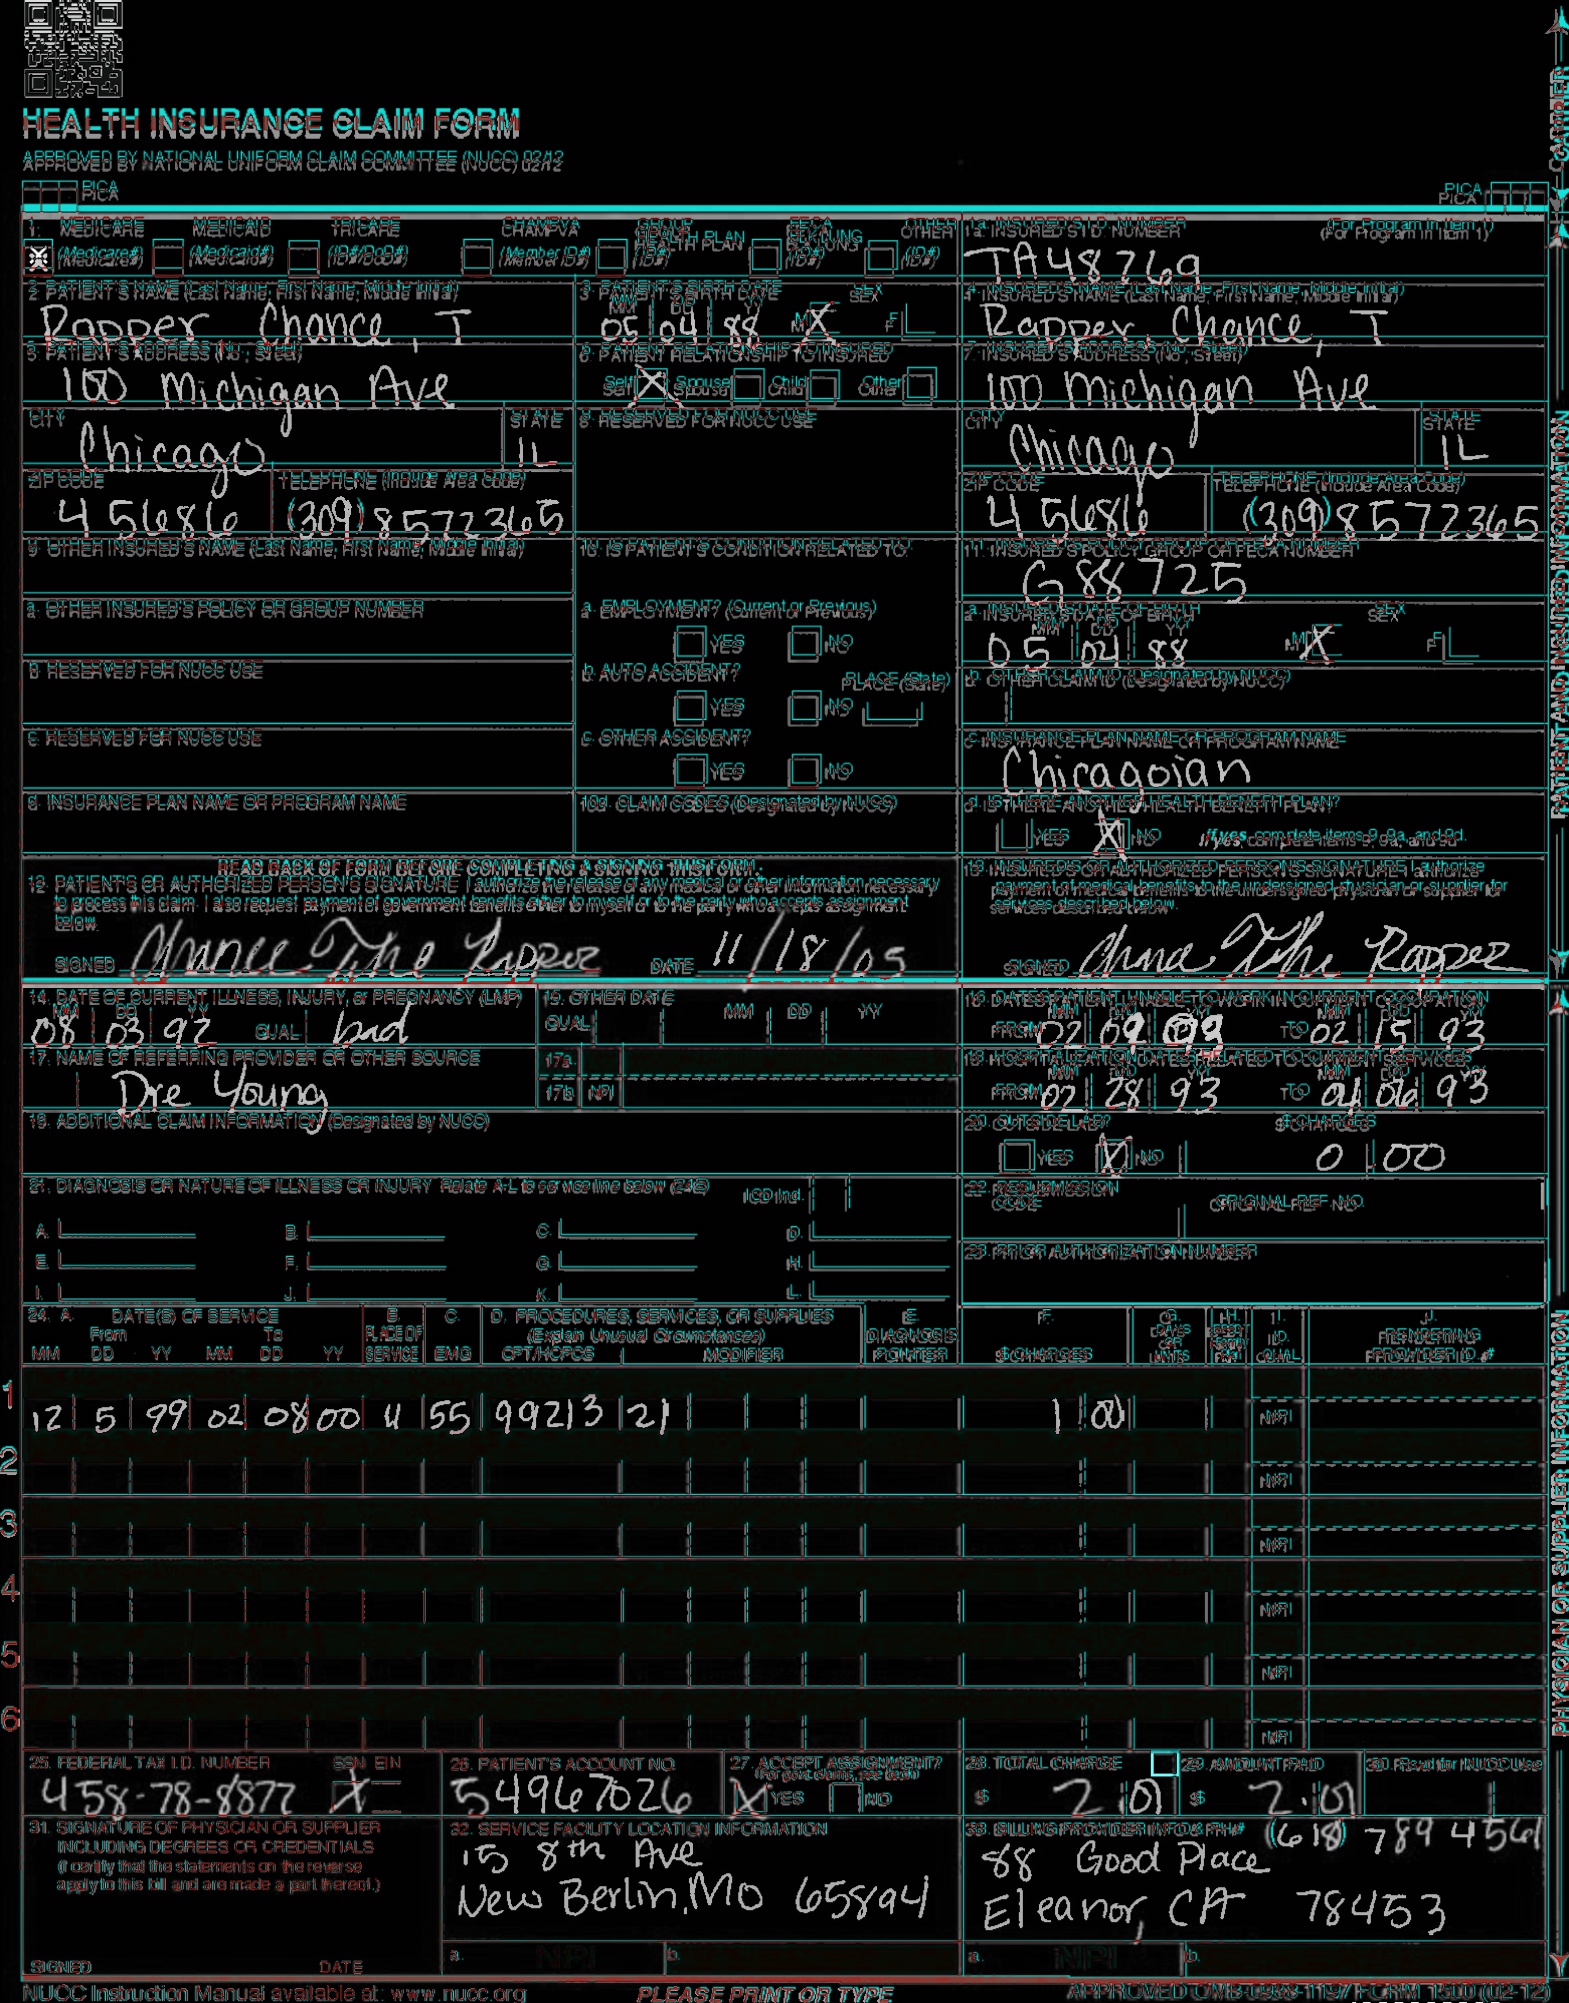 HEALTH INSURANCE CLAIM FORM
APPROVED BY NATIONAL UNIFORM CLAIM COMMITTEE (NUCC) 02/12
PICA PICA
CARRIER
1. MEDICARE MEDICAID TRICARE CHAMPVA GROUP HEALTH PLAN FECA BLK LUNG OTHER
(Medicare#) (Medicaid#) (ID#/DoD#) (Member ID#) (ID#) (ID#) (ID#)
1a. INSURED'S I.D. NUMBER (For Program in Item 1)
TA48769
2. PATIENT'S NAME (Last Name, First Name, Middle Initial)
Rapper Chance, T
3. PATIENT'S BIRTH DATE SEX
MM DD YY
05 04 88 M X F
4. INSURED'S NAME (Last Name, First Name, Middle Initial)
Rapper, Chance, T
5. PATIENT'S ADDRESS (No., Street)
100 Michigan Ave
6. PATIENT RELATIONSHIP TO INSURED
Self X Spouse Child Other
7. INSURED'S ADDRESS (No., Street)
100 Michigan Ave
CITY STATE
Chicago IL
8. RESERVED FOR NUCC USE
CITY STATE
Chicago IL
ZIP CODE TELEPHONE (Include Area Code)
45686 (309) 8572365
ZIP CODE TELEPHONE (Include Area Code)
45686 (309) 8572365
9. OTHER INSURED'S NAME (Last Name, First Name, Middle Initial)
10. IS PATIENT'S CONDITION RELATED TO:
11. INSURED'S POLICY GROUP OR FECA NUMBER
G88725
a. OTHER INSURED'S POLICY OR GROUP NUMBER
a. EMPLOYMENT? (Current or Previous)
YES NO
a. INSURED'S DATE OF BIRTH SEX
MM DD YY
05 04 88 M X F
b. RESERVED FOR NUCC USE
b. AUTO ACCIDENT? PLACE (State)
YES NO
b. OTHER CLAIM ID (Designated by NUCC)
c. RESERVED FOR NUCC USE
c. OTHER ACCIDENT?
YES NO
c. INSURANCE PLAN NAME OR PROGRAM NAME
Chicagoian
d. INSURANCE PLAN NAME OR PROGRAM NAME
10d. CLAIM CODES (Designated by NUCC)
d. IS THERE ANOTHER HEALTH BENEFIT PLAN?
YES X NO If yes, complete items 9, 9a, and 9d.
PATIENT AND INSURED INFORMATION
READ BACK OF FORM BEFORE COMPLETING & SIGNING THIS FORM.
12. PATIENT'S OR AUTHORIZED PERSON'S SIGNATURE I authorize the release of any medical or other information necessary
to process this claim. I also request payment of government benefits either to myself or to the party who accepts assignment
below.
SIGNED Chance The Rapper DATE 11/18/05
13. INSURED'S OR AUTHORIZED PERSON'S SIGNATURE I authorize
payment of medical benefits to the undersigned physician or supplier for
services described below.
SIGNED Chance The Rapper
14. DATE OF CURRENT ILLNESS, INJURY, or PREGNANCY (LMP)
MM DD YY
08 03 92 QUAL. bad
15. OTHER DATE
QUAL. MM DD YY
16. DATES PATIENT UNABLE TO WORK IN CURRENT OCCUPATION
MM DD YY MM DD YY
FROM 02 09 TO 02 15 93
17. NAME OF REFERRING PROVIDER OR OTHER SOURCE
Dre Young
17a.
17b. NPI
18. HOSPITALIZATION DATES RELATED TO CURRENT SERVICES
MM DD YY MM DD YY
FROM 02 28 93 TO 04 06 93
19. ADDITIONAL CLAIM INFORMATION (Designated by NUCC)
20. OUTSIDE LAB? $ CHARGES
YES X NO 0 00
21. DIAGNOSIS OR NATURE OF ILLNESS OR INJURY Relate A-L to service line below (24E) ICD Ind.
A. B. C. D.
E. F. G. H.
I. J. K. L.
22. RESUBMISSION CODE ORIGINAL REF. NO.
23. PRIOR AUTHORIZATION NUMBER
24. A. DATE(S) OF SERVICE B. C. D. PROCEDURES, SERVICES, OR SUPPLIES E. F. G. H. I. J.
From To PLACE OF (Explain Unusual Circumstances) DIAGNOSIS DAYS OR ID. RENDERING
MM DD YY MM DD YY SERVICE EMG CPT/HCPCS MODIFIER POINTER $ CHARGES UNITS QUAL. PROVIDER ID. #
1 12 5 99 02 08 00 4 55 99213 21 1 00 NPI
2 NPI
3 NPI
4 NPI
5 NPI
6 NPI
PHYSICIAN OR SUPPLIER INFORMATION
25. FEDERAL TAX I.D. NUMBER SSN EIN
458-78-8877 X
26. PATIENT'S ACCOUNT NO.
54967026
27. ACCEPT ASSIGNMENT?
(For govt. claims, see back)
X YES NO
28. TOTAL CHARGE
$ 2 01
29. AMOUNT PAID
$ 2.01
30. Rsvd for NUCC Use
31. SIGNATURE OF PHYSICIAN OR SUPPLIER
INCLUDING DEGREES OR CREDENTIALS
(I certify that the statements on the reverse
apply to this bill and are made a part thereof.)
SIGNED DATE
32. SERVICE FACILITY LOCATION INFORMATION
15 8th Ave
New Berlin, MO 65894
a. NPI b.
33. BILLING PROVIDER INFO & PH# (618) 789 4561
88 Good Place
Eleanor, CA 78453
a. NPI b.
NUCC Instruction Manual available at: www.nucc.org
PLEASE PRINT OR TYPE
APPROVED OMB-0938-1197 FORM 1500 (02-12)